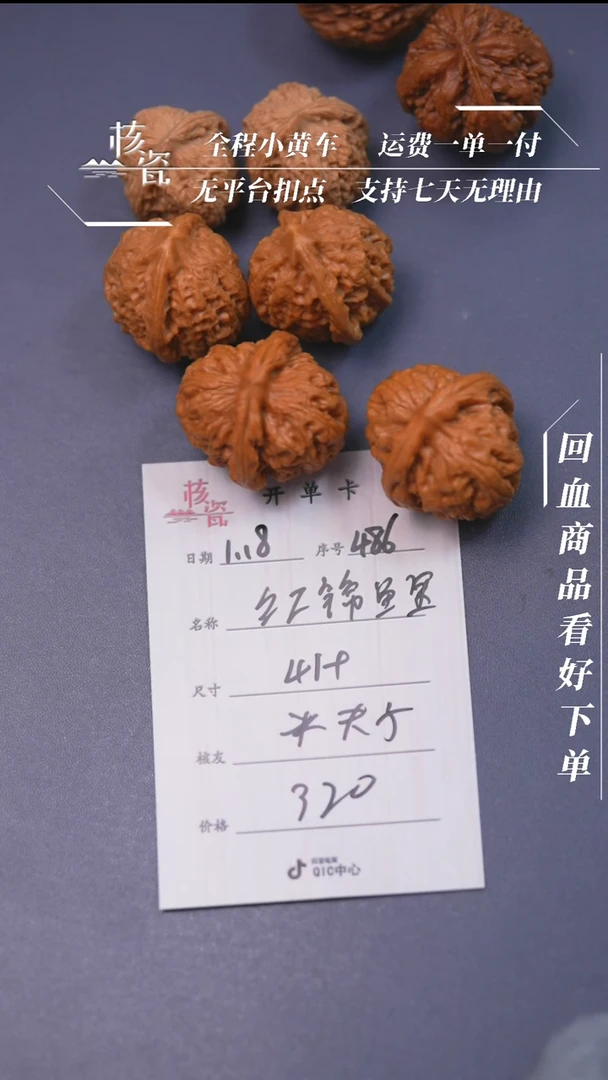 核瓷
全程小黄车 运费一单一付
无平台扣点 支持七天无理由
回血商品看好下单
核瓷
开单卡
日期 1.18 序号 486
名称 红锦
尺寸 41+
核友
价格 320
抖音电商
QIC中心